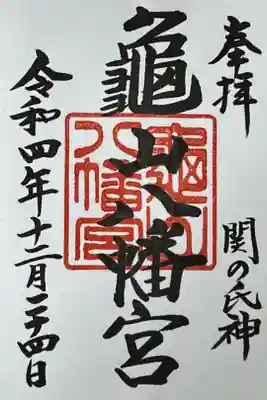 奉拝
関の氏神
龜山八幡宮
龜山
八幡宮
令和四年十二月二十四日